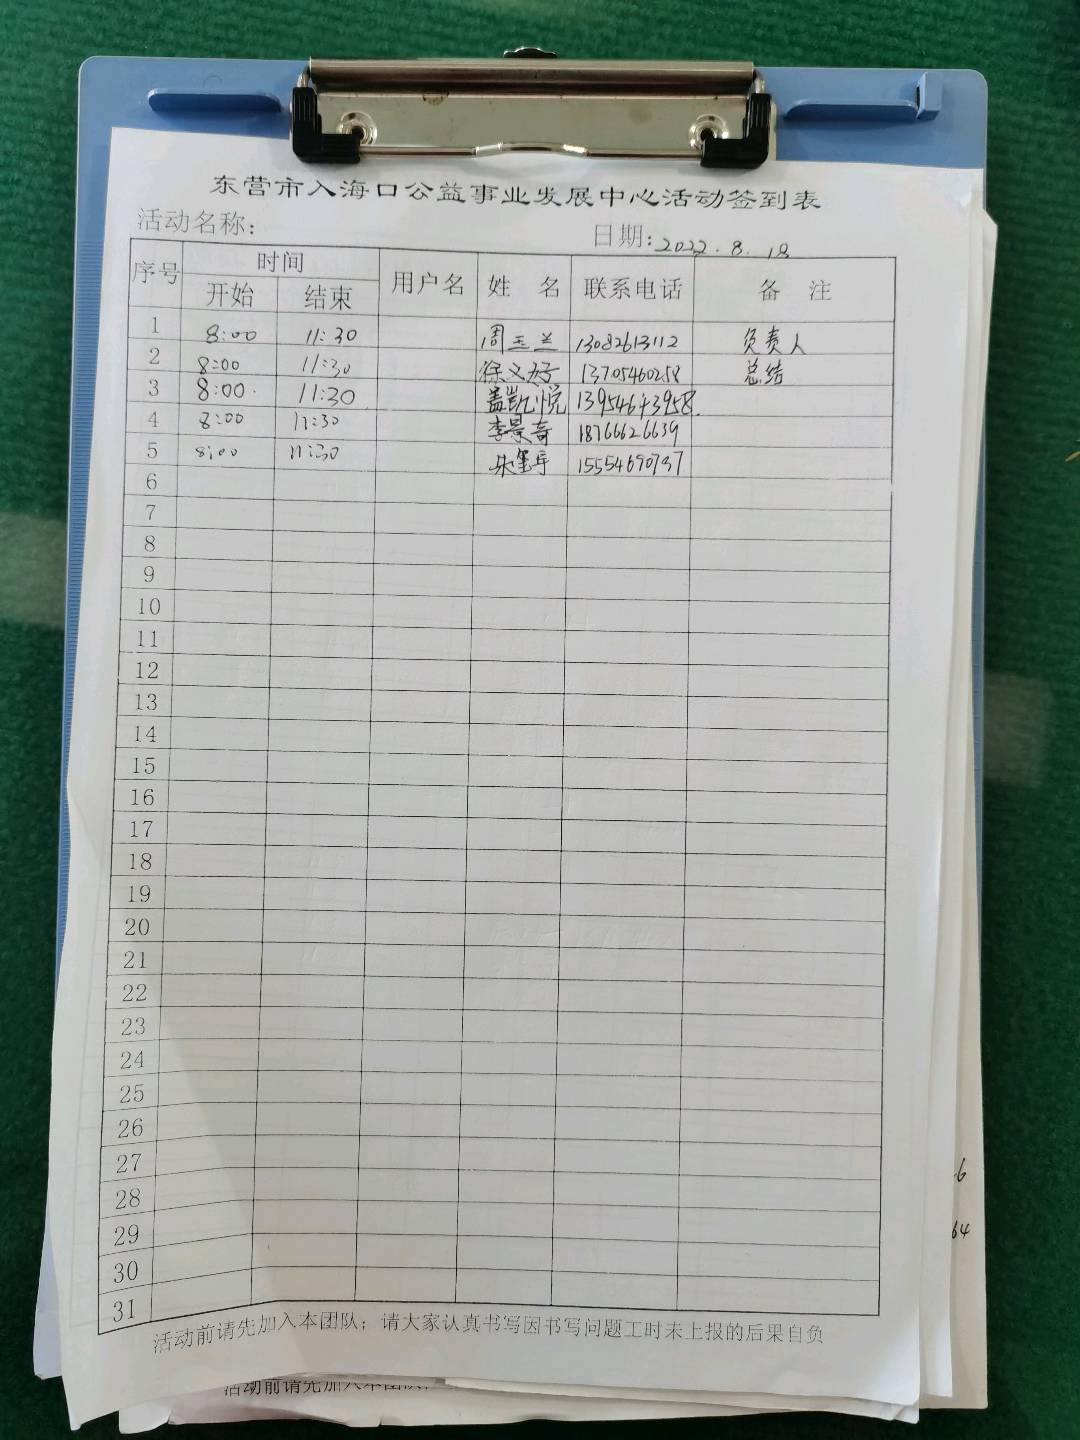 东营市入海口公益事业发展中心活动签到表
活动名称: 日期: 2022.8.18
序号 时间 用户名 姓 名 联系电话 备 注
开始 结束
1 8:00 11:30 周玉兰 13082613112 负责人
2 8:00 11:30 徐义好 13705460258 总结
3 8:00 11:30 盖凯悦 13954643958
4 8:00 11:30 李景奇 18766626639
5 8:00 11:30 15554690737
6
7
8
9
10
11
12
13
14
15
16
17
18
19
20
21
22
23
24
25
26
27
28
29
30
31
活动前请先加入本团队；请大家认真书写因书写问题工时未上报的后果自负
活动前请先加入本团队
6
64